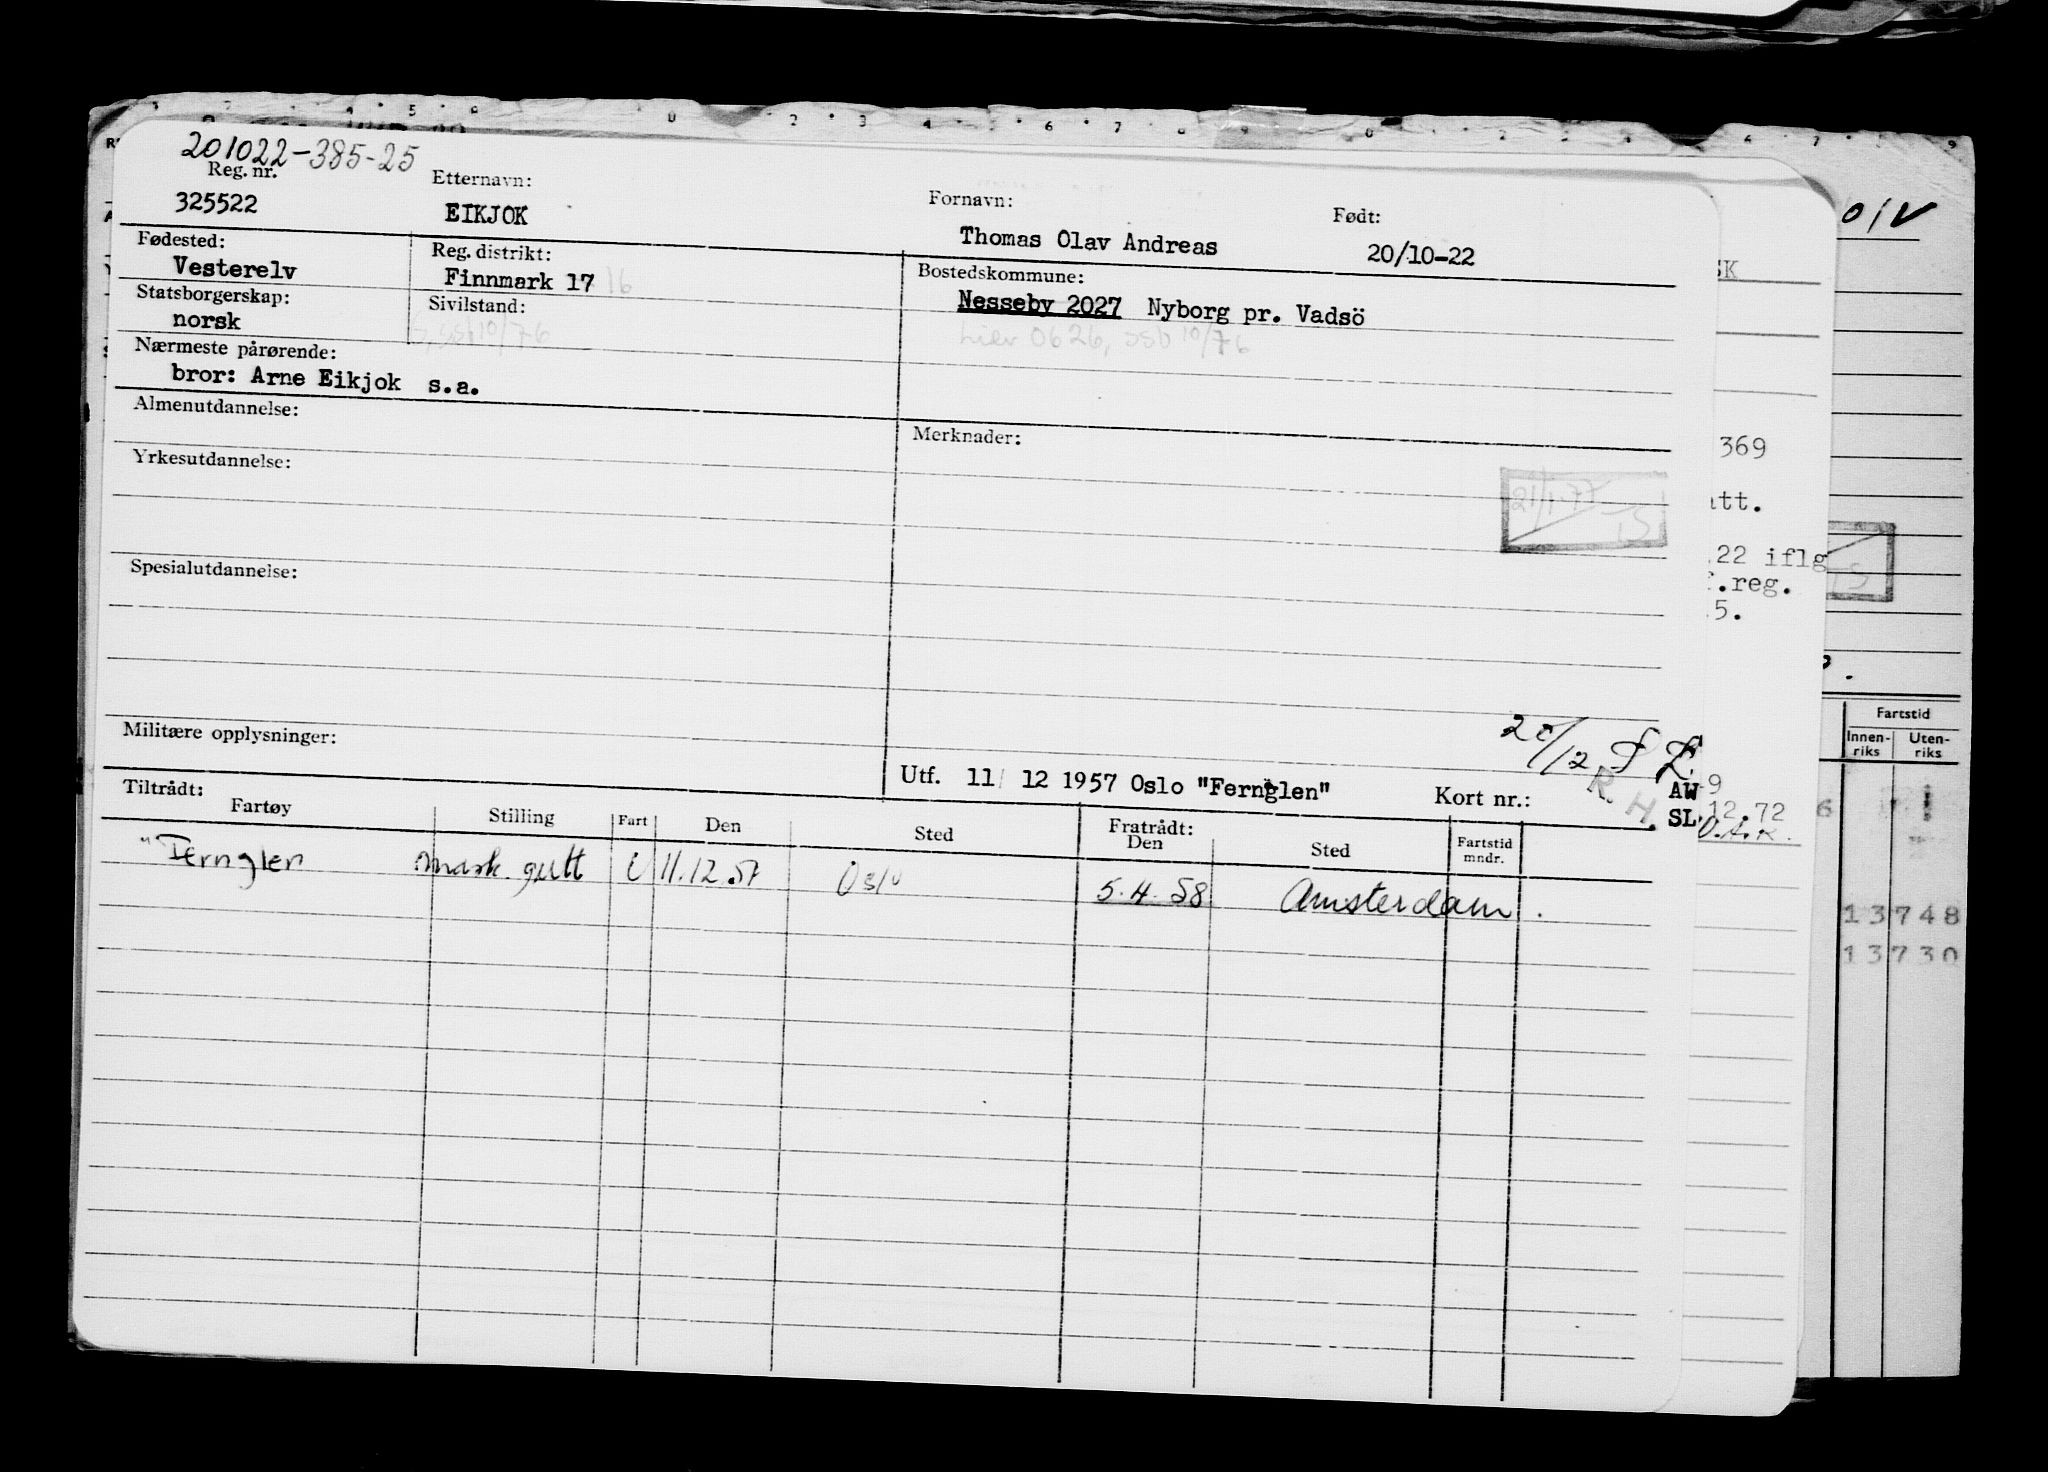 201022-385-25
Reg. nr. Etternavn: Fornavn: Født:
325522 EIKJOK Thomas Olav Andreas 20/10-22
Fødested: Reg. distrikt: Bostedskommune:
Vesterelv Finnmark 17 16 Nesseby 2027 Nyborg pr. Vadsö
Statsborgerskap: Sivilstand:
norsk ssb 10/76 Lier 0626, ssb 10/76
Nærmeste pårørende:
bror: Arne Eikjok s.a.
Almenutdannelse: Merknader:
Yrkesutdannelse:
21/1-77
Spesialutdannelse:
Militære opplysninger:
20/12
R. H.
Utf. 11/ 12 1957 Oslo "Fernglen" Kort nr.:
Tiltrådt: Fratrådt:
Fartøy Stilling Fart Den Sted Den Sted Fartstid mndr.
"Fernglen mask. gutt U 11.12.57 Oslo 5.4.58 Amsterdam.
SK
369
att.
22 iflg
f.reg.
5.
AW 9
SL 12.72
O.A.K.
TS
Fartstid
Innen-riks Uten-riks
13748
13730